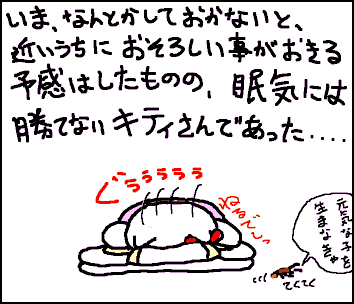 いま、なんとかしておかないと、
近いうちに おそろしい事がおきる
予感はしたものの、眠気には
勝てない キティさんであった‥‥
ぐぅぅぅぅぅ
元気な子を
生まなきゃ
てくてく